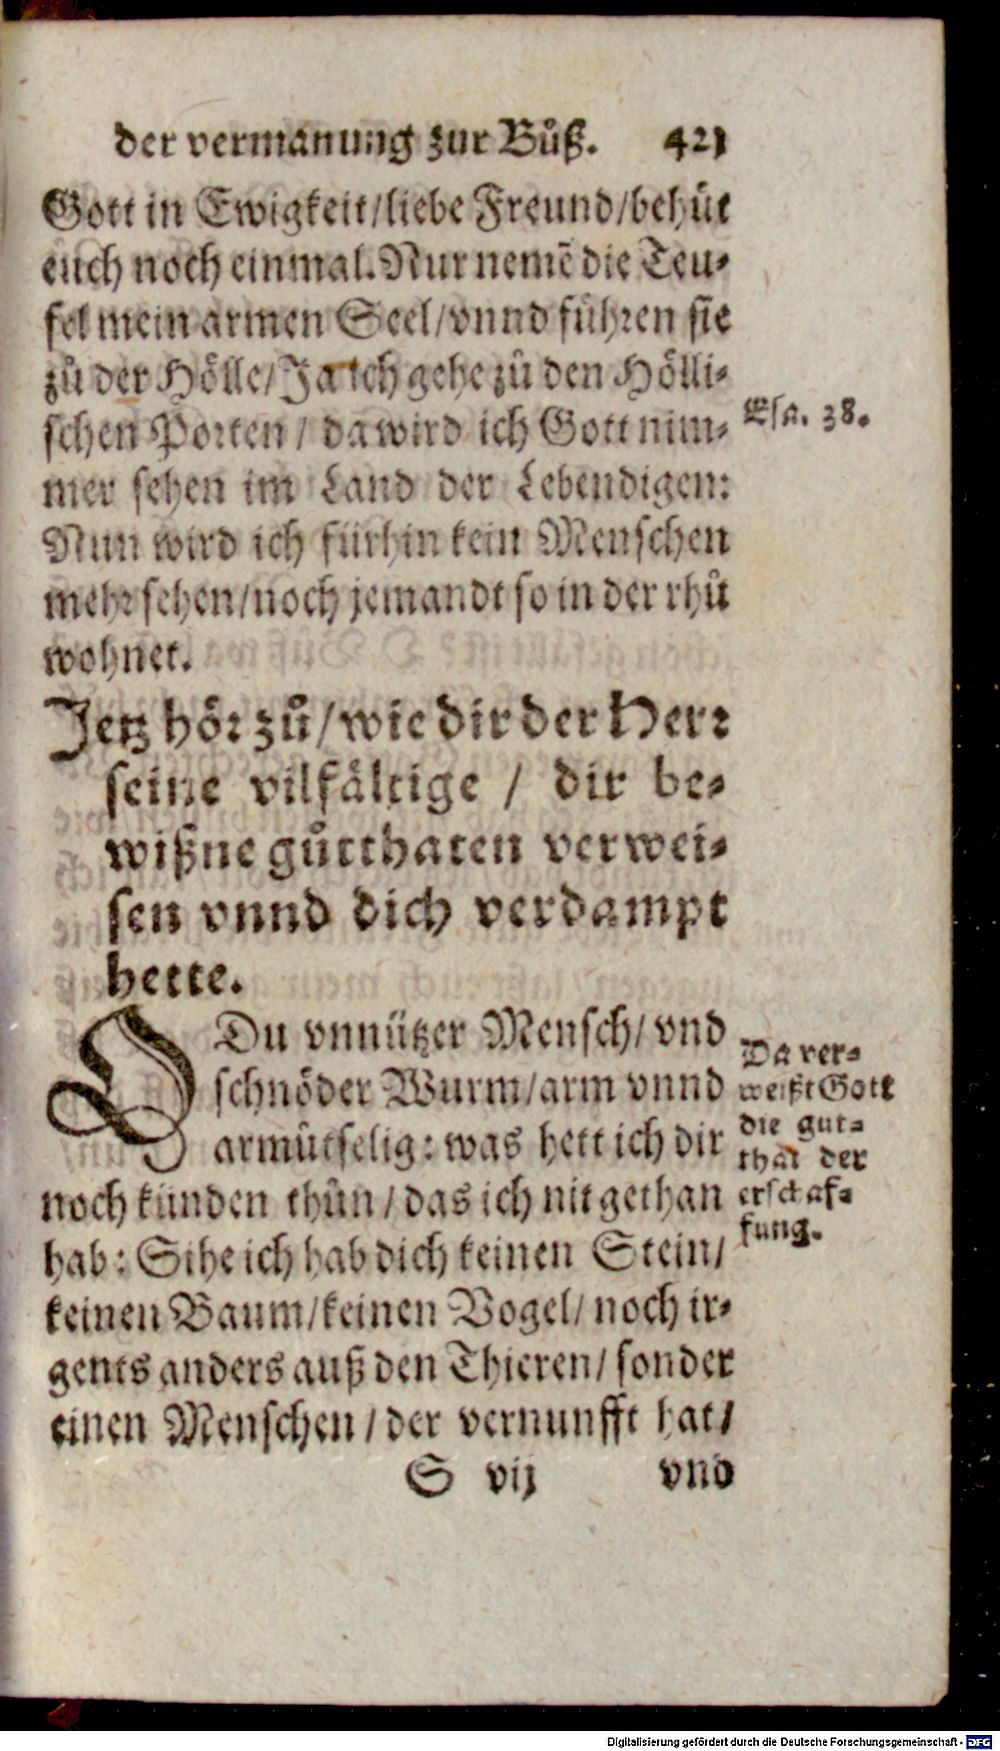 der vermanung zur Bůß. 421
Gott in Ewigkeit/liebe Freund/behüt
euch noch einmal. Nur nemẽ die Teu-
fel mein armen Seel/vnnd führen sie
zů der Hölle/Ja ich gehe zů den Hölli-
schen Porten/ da wird ich Gott nim-
mer sehen im Land der Lebendigen:
Nun wird ich fürhin kein Menschen
mehr sehen/noch jemandt so in der rhů
wohnet.
Esa. 38.
Jetz hör zů/wie dir der Herr
seine vilfältige / dir be-
wißne gůtthaten verwei-
sen vnnd dich verdampt
hette.
O Du vnnützer Mensch/ vnd
schnöder Wurm/arm vnnd
armůtselig: was hett ich dir
noch künden thůn/das ich nit gethan
hab: Sihe ich hab dich keinen Stein/
keinen Baum/keinen Vogel/ noch ir-
gents anders auß den Thieren/ sonder
einen Menschen/der vernunfft hat/
Da ver-
weißt Gott
die gut-
that der
erschaf-
fung.
S vij vnd
Digitalisierung gefördert durch die Deutsche Forschungsgemeinschaft - DFG